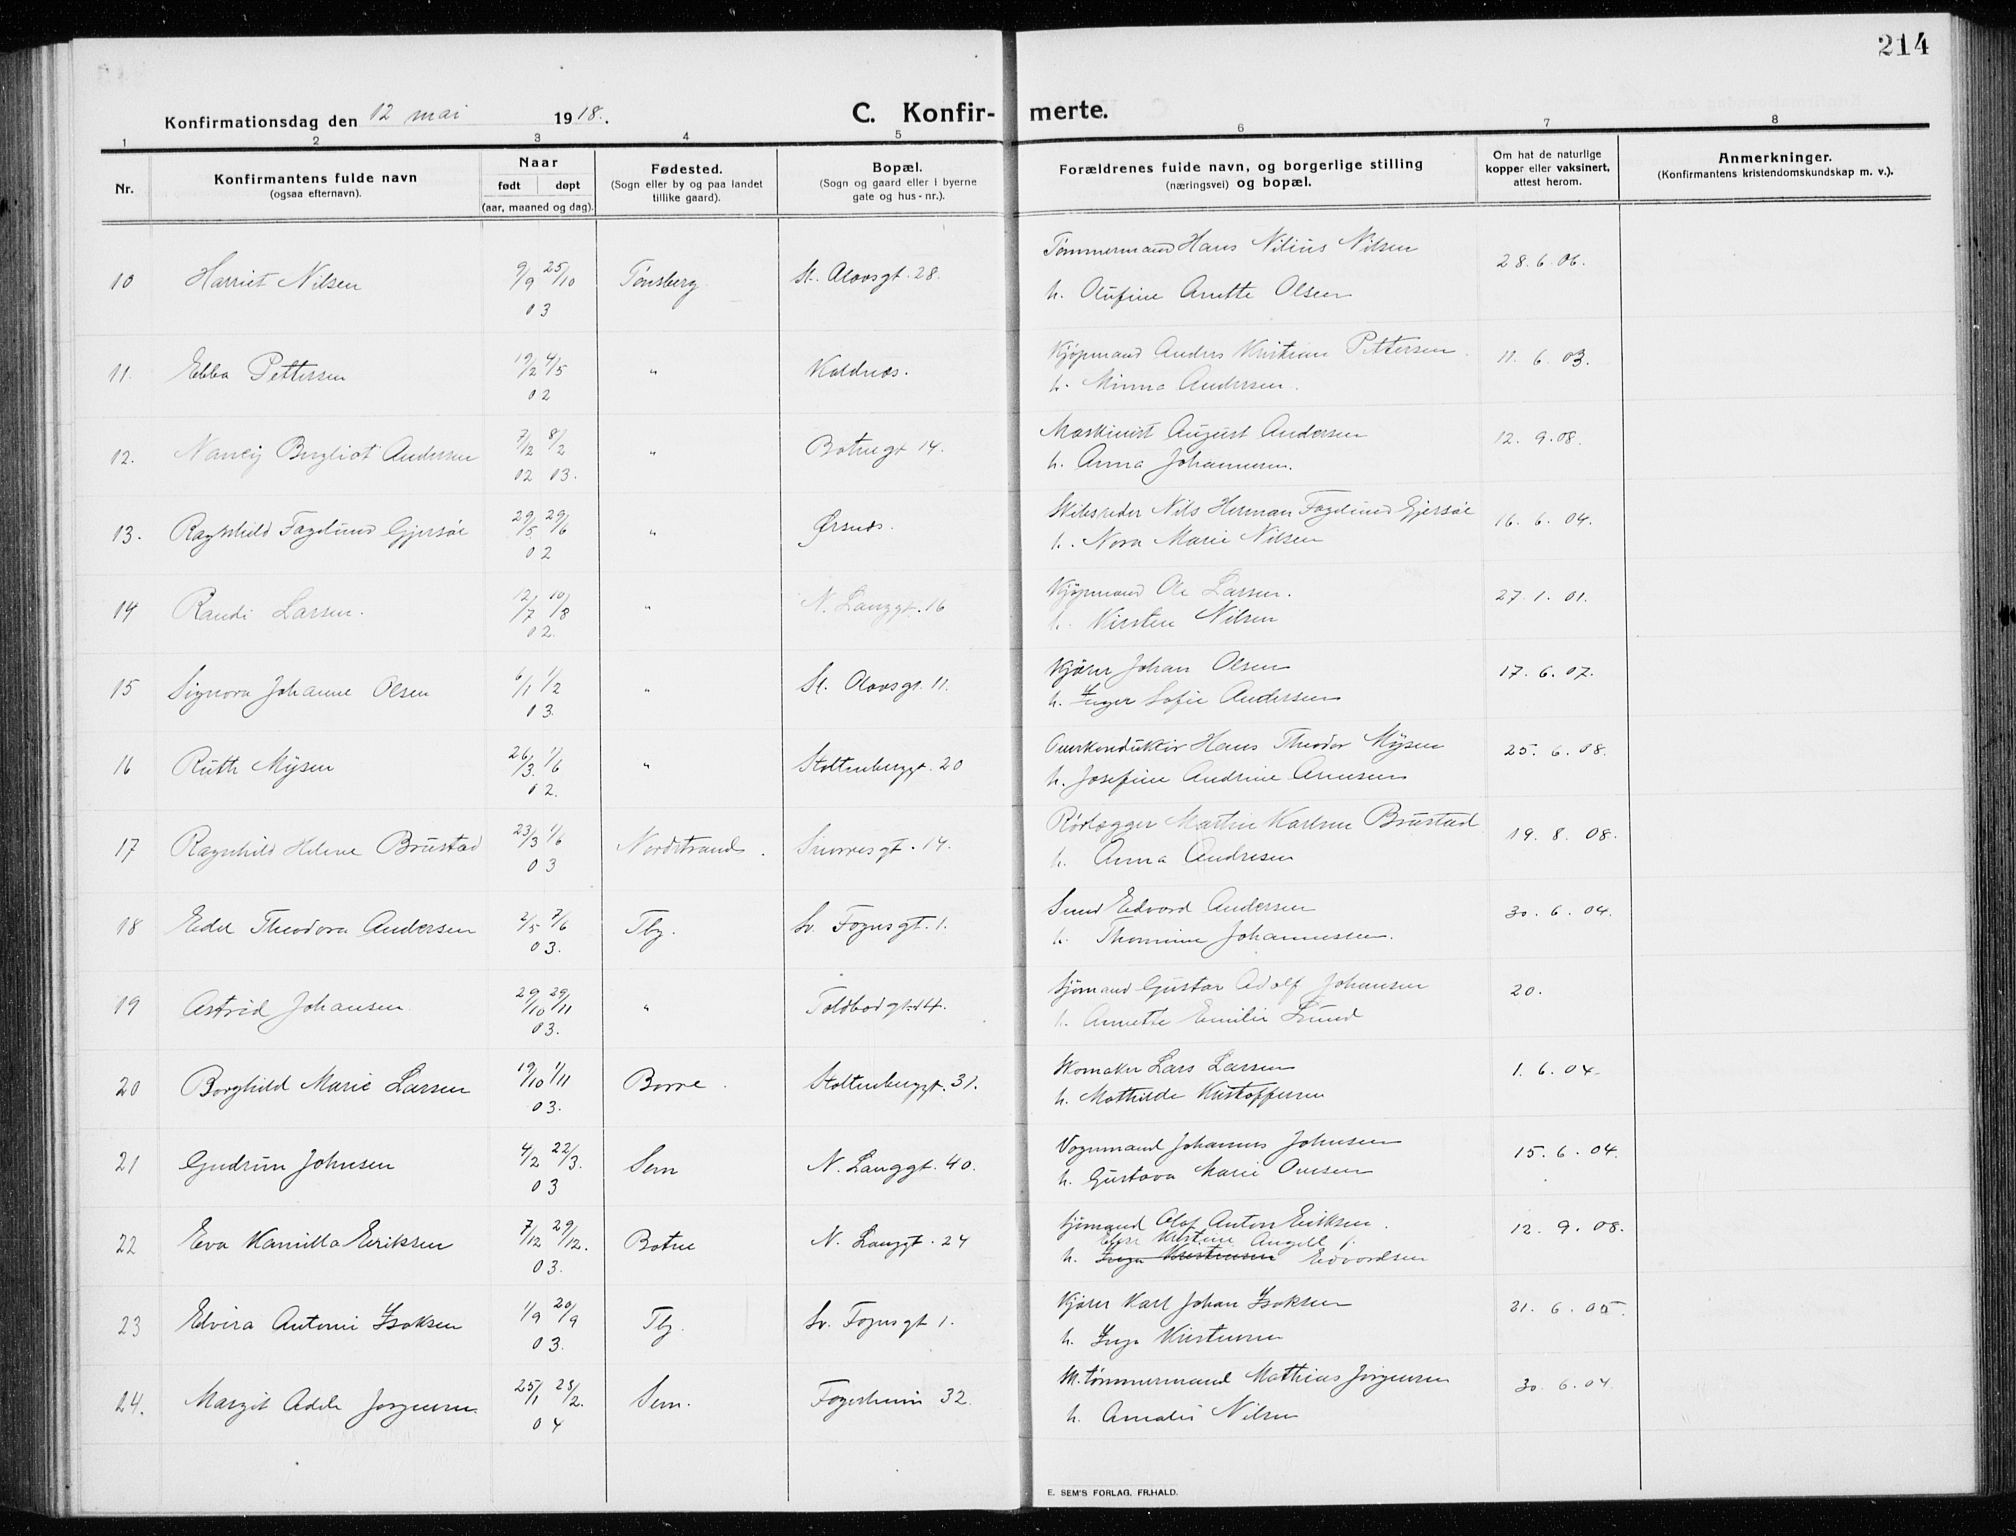 214
Konfirmationsdag den 12 mai 1918.
C. Konfirmerte.
1 2 3 4 5 6 7 8
Nr.
Konfirmantens fulde navn
(ogsaa efternavn).
Naar
født døpt
(aar, maaned og dag).
Fødested.
(Sogn eller by og paa landet
tillike gaard).
Bopæl.
(Sogn og gaard eller i byerne
gate og hus-nr.).
Forældrenes fulde navn, og borgerlige stilling
(næringsvei) og bopæl.
Om hat de naturlige
kopper eller vaksinert,
attest herom.
Anmerkninger.
(Konfirmantens kristendomskundskap m. v.).
10 Harriet Nilsen 9/9 25/10 03 Tønsberg St. Olavsgt. 28. Tømmermand Hans Nilius Nilsen 28.6.06.
h. Olufine Anette Olsen
11. Ebba Pettersen 19/2 4/5 02 " Kaldnes. Kjøpmand Anders Kristian Pettersen 11.6.03.
h. Minna Andersen.
12. Nancy Bergliot Andersen 7/12 8/2 02 03. " Botnegt 14. Maskinist August Andersen 12.9.08.
h. Anna Johannesen.
13. Ragnhild Fagelund Gjersøe 29/5 29/6 02 " Ørsnes. Skibsreder Nils Herman Fagelund Gjersøe 16.6.04.
h. Nora Marie Nilsen
14 Randi Larsen. 12/7 10/8 02. " N. Langgt. 16 Kjøpmand Ole Larsen. 27.1.01.
h. Kirsten Nilsen
15 Signora Johanne Olsen 6/1 1/2 03. " St. Olavsgt. 11. Kjører Johan Olsen 17.6.07.
h. Inger Sofie Andersen
16 Ruth Mysen 26/3. 1/6 02. " Stoltenberggt. 20 Overkonduktør Hans Theodor Mysen 25.6.08.
h. Josefine Andrine Arnesen
17 Ragnhild Helene Brustad 23/3 1/6 03 Nordstrand. Snorresgt. 14. Rørlægger Martin Karlsen Brustad 19.8.08.
h. Anna Andresen
18 Edel Theodora Andersen 2/5 7/6 03. Tbg. Sv. Foynsgt. 1. Smed Edvard Andersen 30.6.04.
h. Thomine Johannessen.
19 Astrid Johansen. 29/10 29/11 03. " Toldbodgt. 14. Sjømand Gustav Adolf Johansen 20.
h. Annette Emilie Lund
20 Borghild Marie Larsen 19/10 1/11 03. Borre. Stoltenberggt. 31. Skomaker Lars Larsen 1.6.04.
h. Mathilde Kristoffersen
21 Gudrun Johnsen 4/2 22/3. 03 Sem N. Langgt. 40. Vognmand Johannes Johnsen 15.6.04.
h. Gustava Marie Oversen
22 Eva Kamilla Eriksen 7/12 29/12. 03. Botne N. Langgt. 24 Sjømand Olaf Anton Eriksen. 12.9.08.
Elise Kristine Angell f.
h. Inga Kristensen Edvardsen
23 Elvira Antonie Isaksen 1/9 20/9 03. Tbg. Sv. Foynsgt 1. Kjører Karl Johan Isaksen 21.6.05.
h. Inga Kristensen
24. Margit Adele Jørgensen 25/1 28/2. 04 Sem. Fagerheim 32. M. tømmermand Mathias Jørgensen 30.6.04.
h. Amalie Nilsen
E. SEM'S FORLAG, FR.HALD.